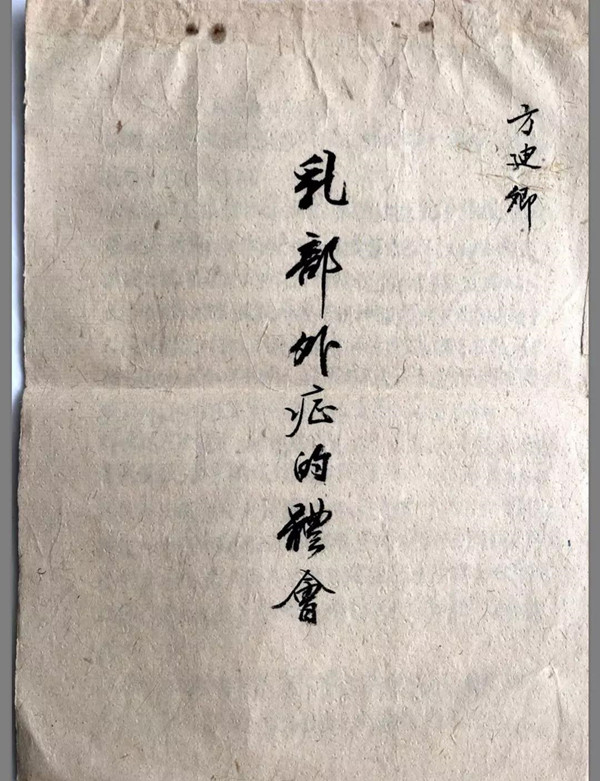 方迪卿
乳部外症的體會